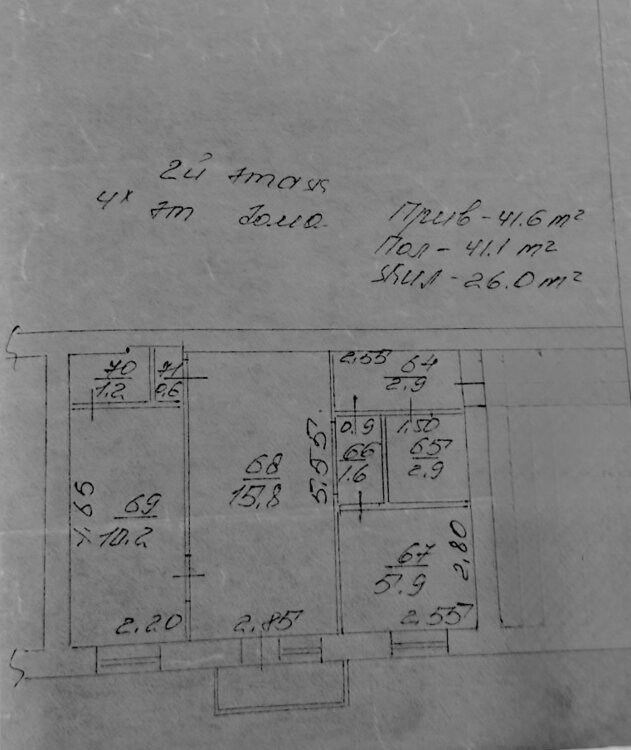 2й этаж
4х эт дома
Прив - 41.6 м²
Пол - 41.1 м²
Жил - 26.0 м²
70
1.2
71
0.6
2.55
64
2.9
68
15.8
5.55
0.9
66
1.6
1.50
65
2.9
4.65
69
10.2
67
5.9
2.80
2.20
2.85
2.55